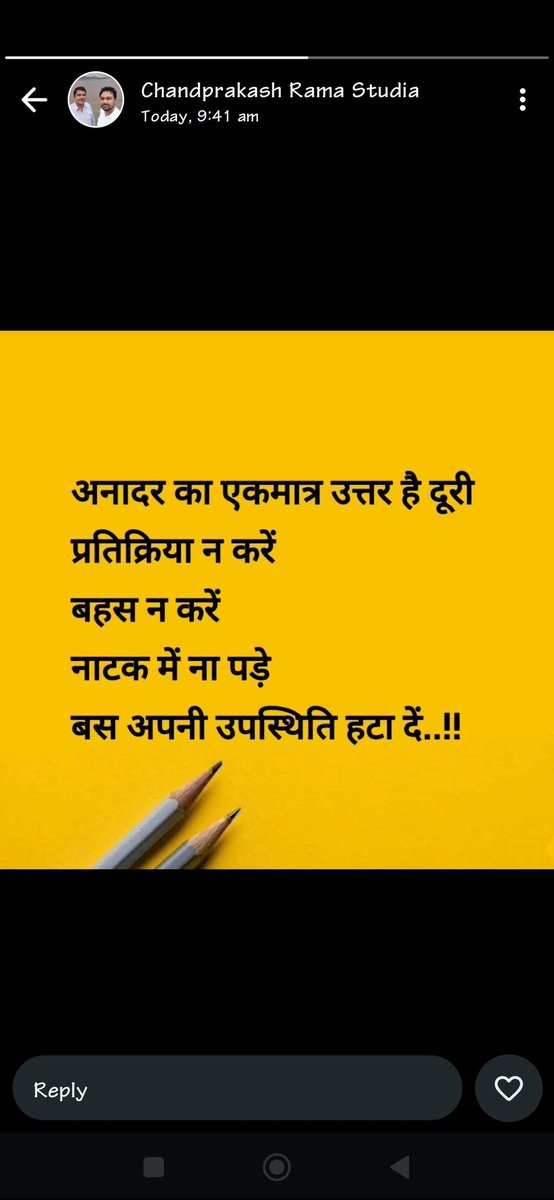 Chandprakash Rama Studia
Today, 9:41 am
अनादर का एकमात्र उत्तर है दूरी
प्रतिक्रिया न करें
बहस न करें
नाटक में ना पड़े
बस अपनी उपस्थिति हटा दें..!!
Reply